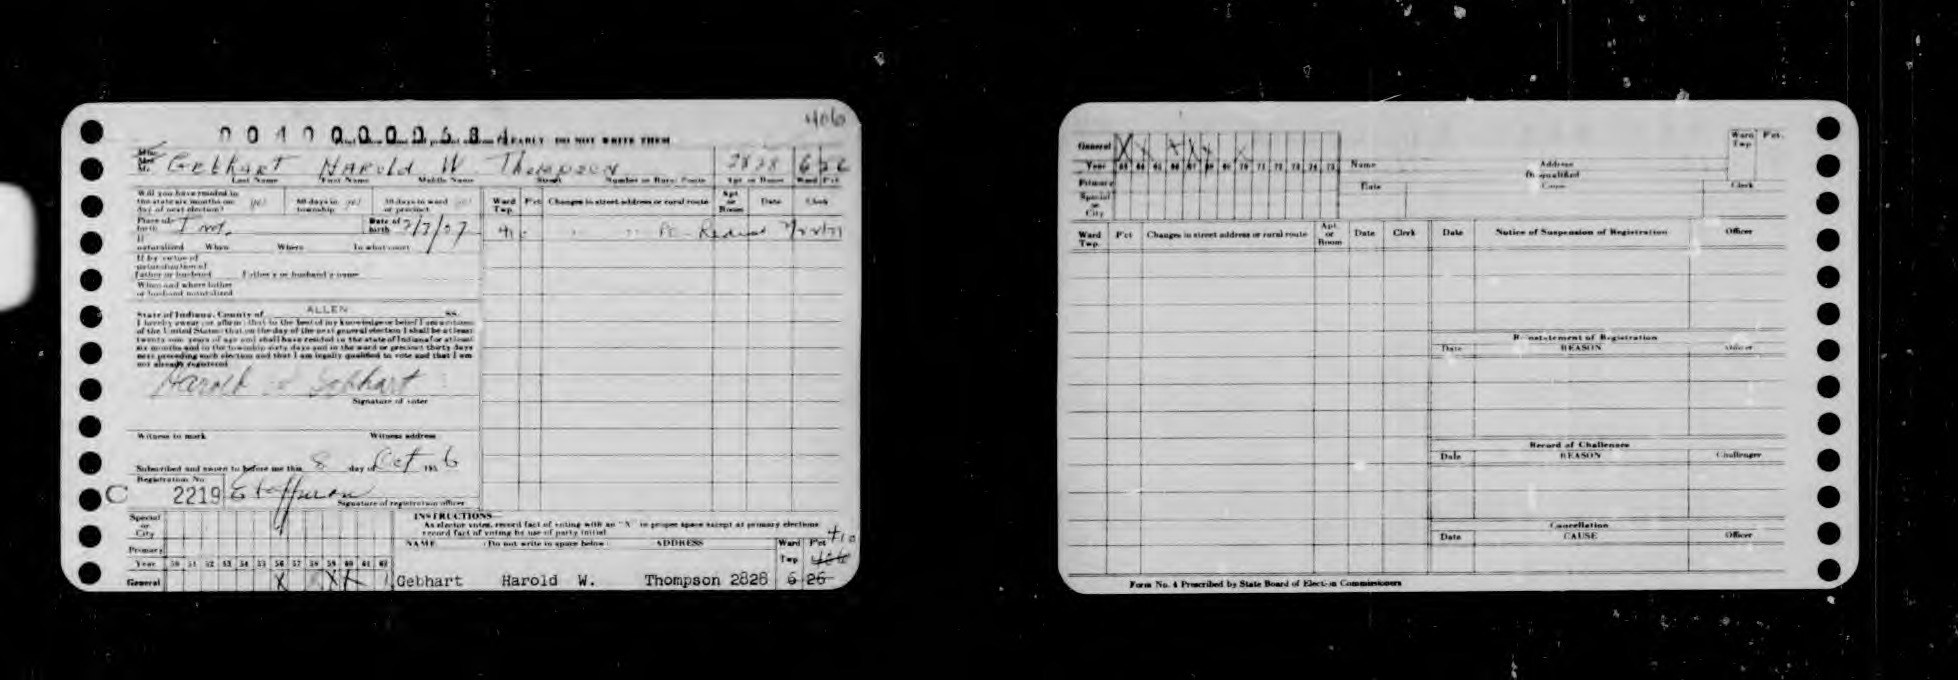 406
0 0 4 0 0 0 0 0 5 8 4
EARLY DO NOT WRITE THEM
Mrs.
Mr. Gebhart Harold W. Thompson 2828 6 26
Last Name First Name Middle Name Street Number or Rural Route Apt. or Room Ward Pct
Will you have resided in
the state six months on
day of next election? yes 60 days in
township yes 30 days in ward
or precinct
Ward
Twp. Pct Changes in street address or rural route Apt.
or
Room Date Clerk
Place of
birth Ind. Date of
birth
If
naturalized When Where In what court
If by virtue of
naturalization of
Father or husband Father's or husband's name
When and where father
or husband naturalized
State of Indiana, County of ALLEN SS.
I hereby swear (or affirm) that to the best of my knowledge or belief I am a citizen
of the United States; that on the day of the next general election I shall be at least
twenty one years of age and shall have resided in the state of Indiana for at least
six months and in the township sixty days and in the ward or precinct thirty days
next preceding such election and that I am legally qualified to vote and that I am
not already registered
Harold Gebhart
Signature of voter
Witness to mark Witness address
Subscribed and sworn to before me this 8 day of Oct 195 6
Registration No.
C 2219
Signature of registration officer
Special
or
City
Primary
Year 50 51 52 53 54 55 56 57 58 59 60 61 62
General X X X
INSTRUCTIONS
As elector votes, record fact of voting with an "X" in proper space except at primary elections
record fact of voting by use of party initial
NAME (Do not write in space below) ADDRESS Ward
Twp Pct 410
406
Gebhart Harold W. Thompson 2828 6 26
General X X X X X X
Year 63 64 65 66 67 68 69 70 71 72 73 74 75
Primary
Special
or
City
Name Address Ward
Twp Pct.
Disqualified
Date Cause Clerk
Ward
Twp. Pct Changes in street address or rural route Apt.
or
Room Date Clerk Date Notice of Suspension of Registration Officer
Reinstatement of Registration
Date REASON Officer
Record of Challenges
Date REASON Challenger
Cancellation
Date CAUSE Officer
Form No. 4 Prescribed by State Board of Election Commissioners